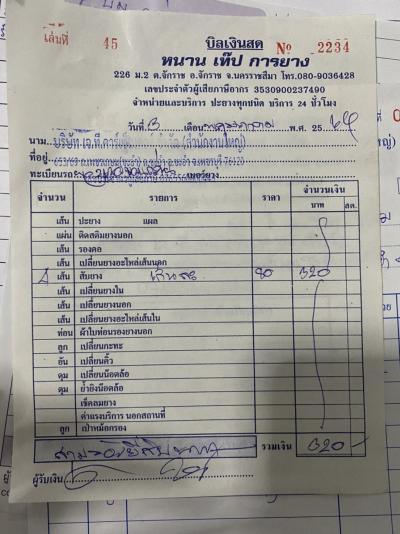 เล่มที่ 45 บิลเงินสด No 2234
หนาน เท๊ป การยาง
226 ม.2 ต.จักราช อ.จักราช จ.นครราชสีมา โทร.080-9036428
เลขประจำตัวผู้เสียภาษีอากร 3530900237490
จำหน่ายและบริการ ปะยางทุกชนิด บริการ 24 ชั่วโมง
วันที่ 3 เดือน พ.ศ. 25 64
นาม บริษัท (สำนักงานใหญ่)
ที่อยู่ 76120
ทะเบียนรถ เบอร์ยาง
จำนวน รายการ ราคา จำนวนเงิน
บาท สต.
เส้น ปะยาง แผล
แผ่น ติดสติมยางนอก
เส้น รองคอ
เส้น เปลี่ยนยางอะไหล่เส้นนอก
4 เส้น สับยาง เส้นละ 80 320
เส้น เปลี่ยนยางใน
เส้น เปลี่ยนยางนอก
เส้น เปลี่ยนยางอะไหล่เส้นใน
ท่อน ผ้าใบท่อนรองยางนอก
ลูก เปลี่ยนกะทะ
อัน เปลี่ยนคิ้ว
ตุม เปลี่ยนน๊อตล้อ
ตุม ย้ำยิงน๊อตล้อ
เช็คลมยาง
ค่าแรงบริการ นอกสถานที่
ลูก เป่าหม้อกรอง
สามร้อยยี่สิบบาท รวมเงิน 320
ผู้รับเงิน